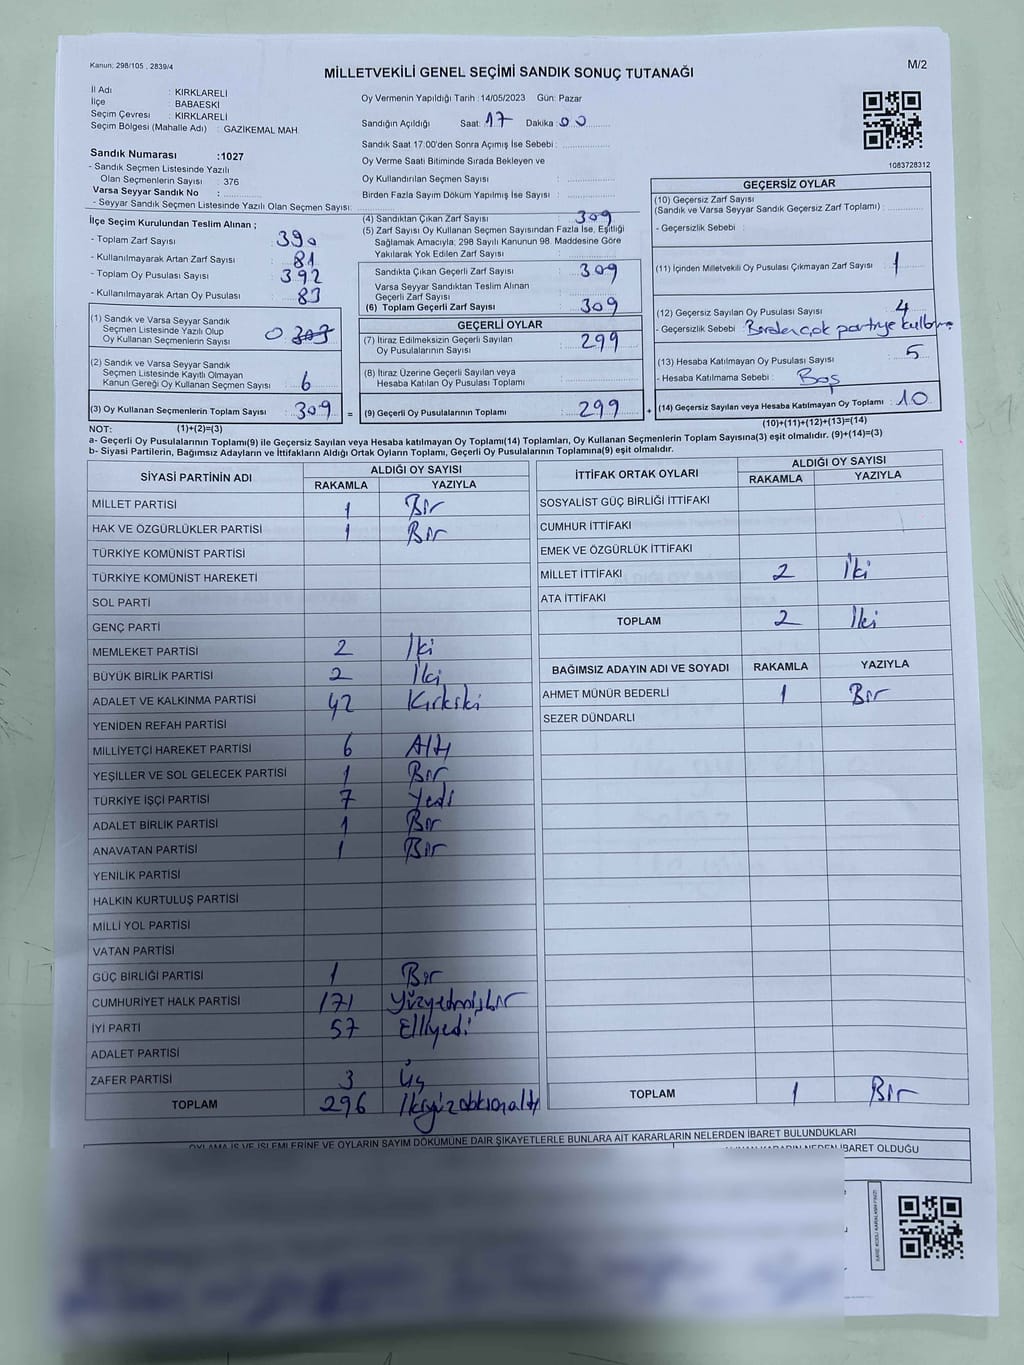 Kanun: 298/105 , 2839/4
M/2
MİLLETVEKİLİ GENEL SEÇİMİ SANDIK SONUÇ TUTANAĞI
İl Adı : KIRKLARELİ
İlçe : BABAESKİ
Seçim Çevresi : KIRKLARELİ
Seçim Bölgesi (Mahalle Adı) : GAZİKEMAL MAH.
Oy Vermenin Yapıldığı Tarih :14/05/2023 Gün: Pazar
Sandığın Açıldığı Saat: 17 Dakika 00
Sandık Saat 17:00'den Sonra Açımış İse Sebebi :
Oy Verme Saati Bitiminde Sırada Bekleyen ve
Oy Kullandırılan Seçmen Sayısı :
Birden Fazla Sayım Döküm Yapılmış İse Sayısı :
1083728312
Sandık Numarası :1027
- Sandık Seçmen Listesinde Yazılı
Olan Seçmenlerin Sayısı : 376
Varsa Seyyar Sandık No :
- Seyyar Sandık Seçmen Listesinde Yazılı Olan Seçmen Sayısı:
İlçe Seçim Kurulundan Teslim Alınan ;
- Toplam Zarf Sayısı 390
- Kullanılmayarak Artan Zarf Sayısı 81
- Toplam Oy Pusulası Sayısı 392
- Kullanılmayarak Artan Oy Pusulası 83
(1) Sandık ve Varsa Seyyar Sandık
Seçmen Listesinde Yazılı Olup
Oy Kullanan Seçmenlerin Sayısı
(2) Sandık ve Varsa Seyyar Sandık
Seçmen Listesinde Kayıtlı Olmayan
Kanun Gereği Oy Kullanan Seçmen Sayısı 6
(3) Oy Kullanan Seçmenlerin Toplam Sayısı : 309 =
(4) Sandıktan Çıkan Zarf Sayısı 309
(5) Zarf Sayısı Oy Kullanan Seçmen Sayısından Fazla İse, Eşitliği
Sağlamak Amacıyla; 298 Sayılı Kanunun 98. Maddesine Göre
Yakılarak Yok Edilen Zarf Sayısı :
Sandıkta Çıkan Geçerli Zarf Sayısı : 309
Varsa Seyyar Sandıktan Teslim Alınan
Geçerli Zarf Sayısı
(6) Toplam Geçerli Zarf Sayısı : 309
GEÇERLİ OYLAR
(7) İtiraz Edilmeksizin Geçerli Sayılan
Oy Pusulalarının Sayısı : 299
(8) İtiraz Üzerine Geçerli Sayılan veya
Hesaba Katılan Oy Pusulası Toplamı :
(9) Geçerli Oy Pusulalarının Toplamı : 299 +
GEÇERSİZ OYLAR
(10) Geçersiz Zarf Sayısı
(Sandık ve Varsa Seyyar Sandık Geçersiz Zarf Toplamı) :
- Geçersizlik Sebebi :
(11) İçinden Milletvekili Oy Pusulası Çıkmayan Zarf Sayısı : 1
(12) Geçersiz Sayılan Oy Pusulası Sayısı : 4
- Geçersizlik Sebebi :
(13) Hesaba Katılmayan Oy Pusulası Sayısı : 5
- Hesaba Katılmama Sebebi : Boş
(14) Geçersiz Sayılan veya Hesaba Katılmayan Oy Toplamı : 10
(10)+(11)+(12)+(13)=(14)
NOT: (1)+(2)=(3)
a- Geçerli Oy Pusulalarının Toplamı(9) ile Geçersiz Sayılan veya Hesaba katılmayan Oy Toplamı(14) Toplamları, Oy Kullanan Seçmenlerin Toplam Sayısına(3) eşit olmalıdır. (9)+(14)=(3)
b- Siyasi Partilerin, Bağımsız Adayların ve İttifakların Aldığı Ortak Oyların Toplamı, Geçerli Oy Pusulalarının Toplamına(9) eşit olmalıdır.
SİYASİ PARTİNİN ADI ALDIĞI OY SAYISI
RAKAMLA YAZIYLA
MİLLET PARTİSİ 1 Bir
HAK VE ÖZGÜRLÜKLER PARTİSİ 1 Bir
TÜRKİYE KOMÜNİST PARTİSİ
TÜRKİYE KOMÜNİST HAREKETİ
SOL PARTİ
GENÇ PARTİ
MEMLEKET PARTİSİ 2 İki
BÜYÜK BİRLİK PARTİSİ 2 İki
ADALET VE KALKINMA PARTİSİ 42 Kırkiki
YENİDEN REFAH PARTİSİ
MİLLİYETÇİ HAREKET PARTİSİ 6 Altı
YEŞİLLER VE SOL GELECEK PARTİSİ 1 Bir
TÜRKİYE İŞÇİ PARTİSİ 7 Yedi
ADALET BİRLİK PARTİSİ 1 Bir
ANAVATAN PARTİSİ 1 Bir
YENİLİK PARTİSİ
HALKIN KURTULUŞ PARTİSİ
MİLLİ YOL PARTİSİ
VATAN PARTİSİ
GÜÇ BİRLİĞİ PARTİSİ 1 Bir
CUMHURİYET HALK PARTİSİ 171 Yüzyetmişbir
İYİ PARTİ 57 Elliyedi
ADALET PARTİSİ
ZAFER PARTİSİ 3 Üç
TOPLAM 296 İkiyüzdoksanaltı
İTTİFAK ORTAK OYLARI ALDIĞI OY SAYISI
RAKAMLA YAZIYLA
SOSYALİST GÜÇ BİRLİĞİ İTTİFAKI
CUMHUR İTTİFAKI
EMEK VE ÖZGÜRLÜK İTTİFAKI
MİLLET İTTİFAKI 2 İki
ATA İTTİFAKI
TOPLAM 2 İki
BAĞIMSIZ ADAYIN ADI VE SOYADI RAKAMLA YAZIYLA
AHMET MÜNÜR BEDERLİ 1 Bir
SEZER DÜNDARLI
TOPLAM 1 Bir
OYLAMA İŞ VE İŞLEMLERİNE VE OYLARIN SAYIM DÖKÜMÜNE DAİR ŞİKAYETLERLE BUNLARA AİT KARARLARIN NELERDEN İBARET BULUNDUKLARI
İBARET OLDUĞU